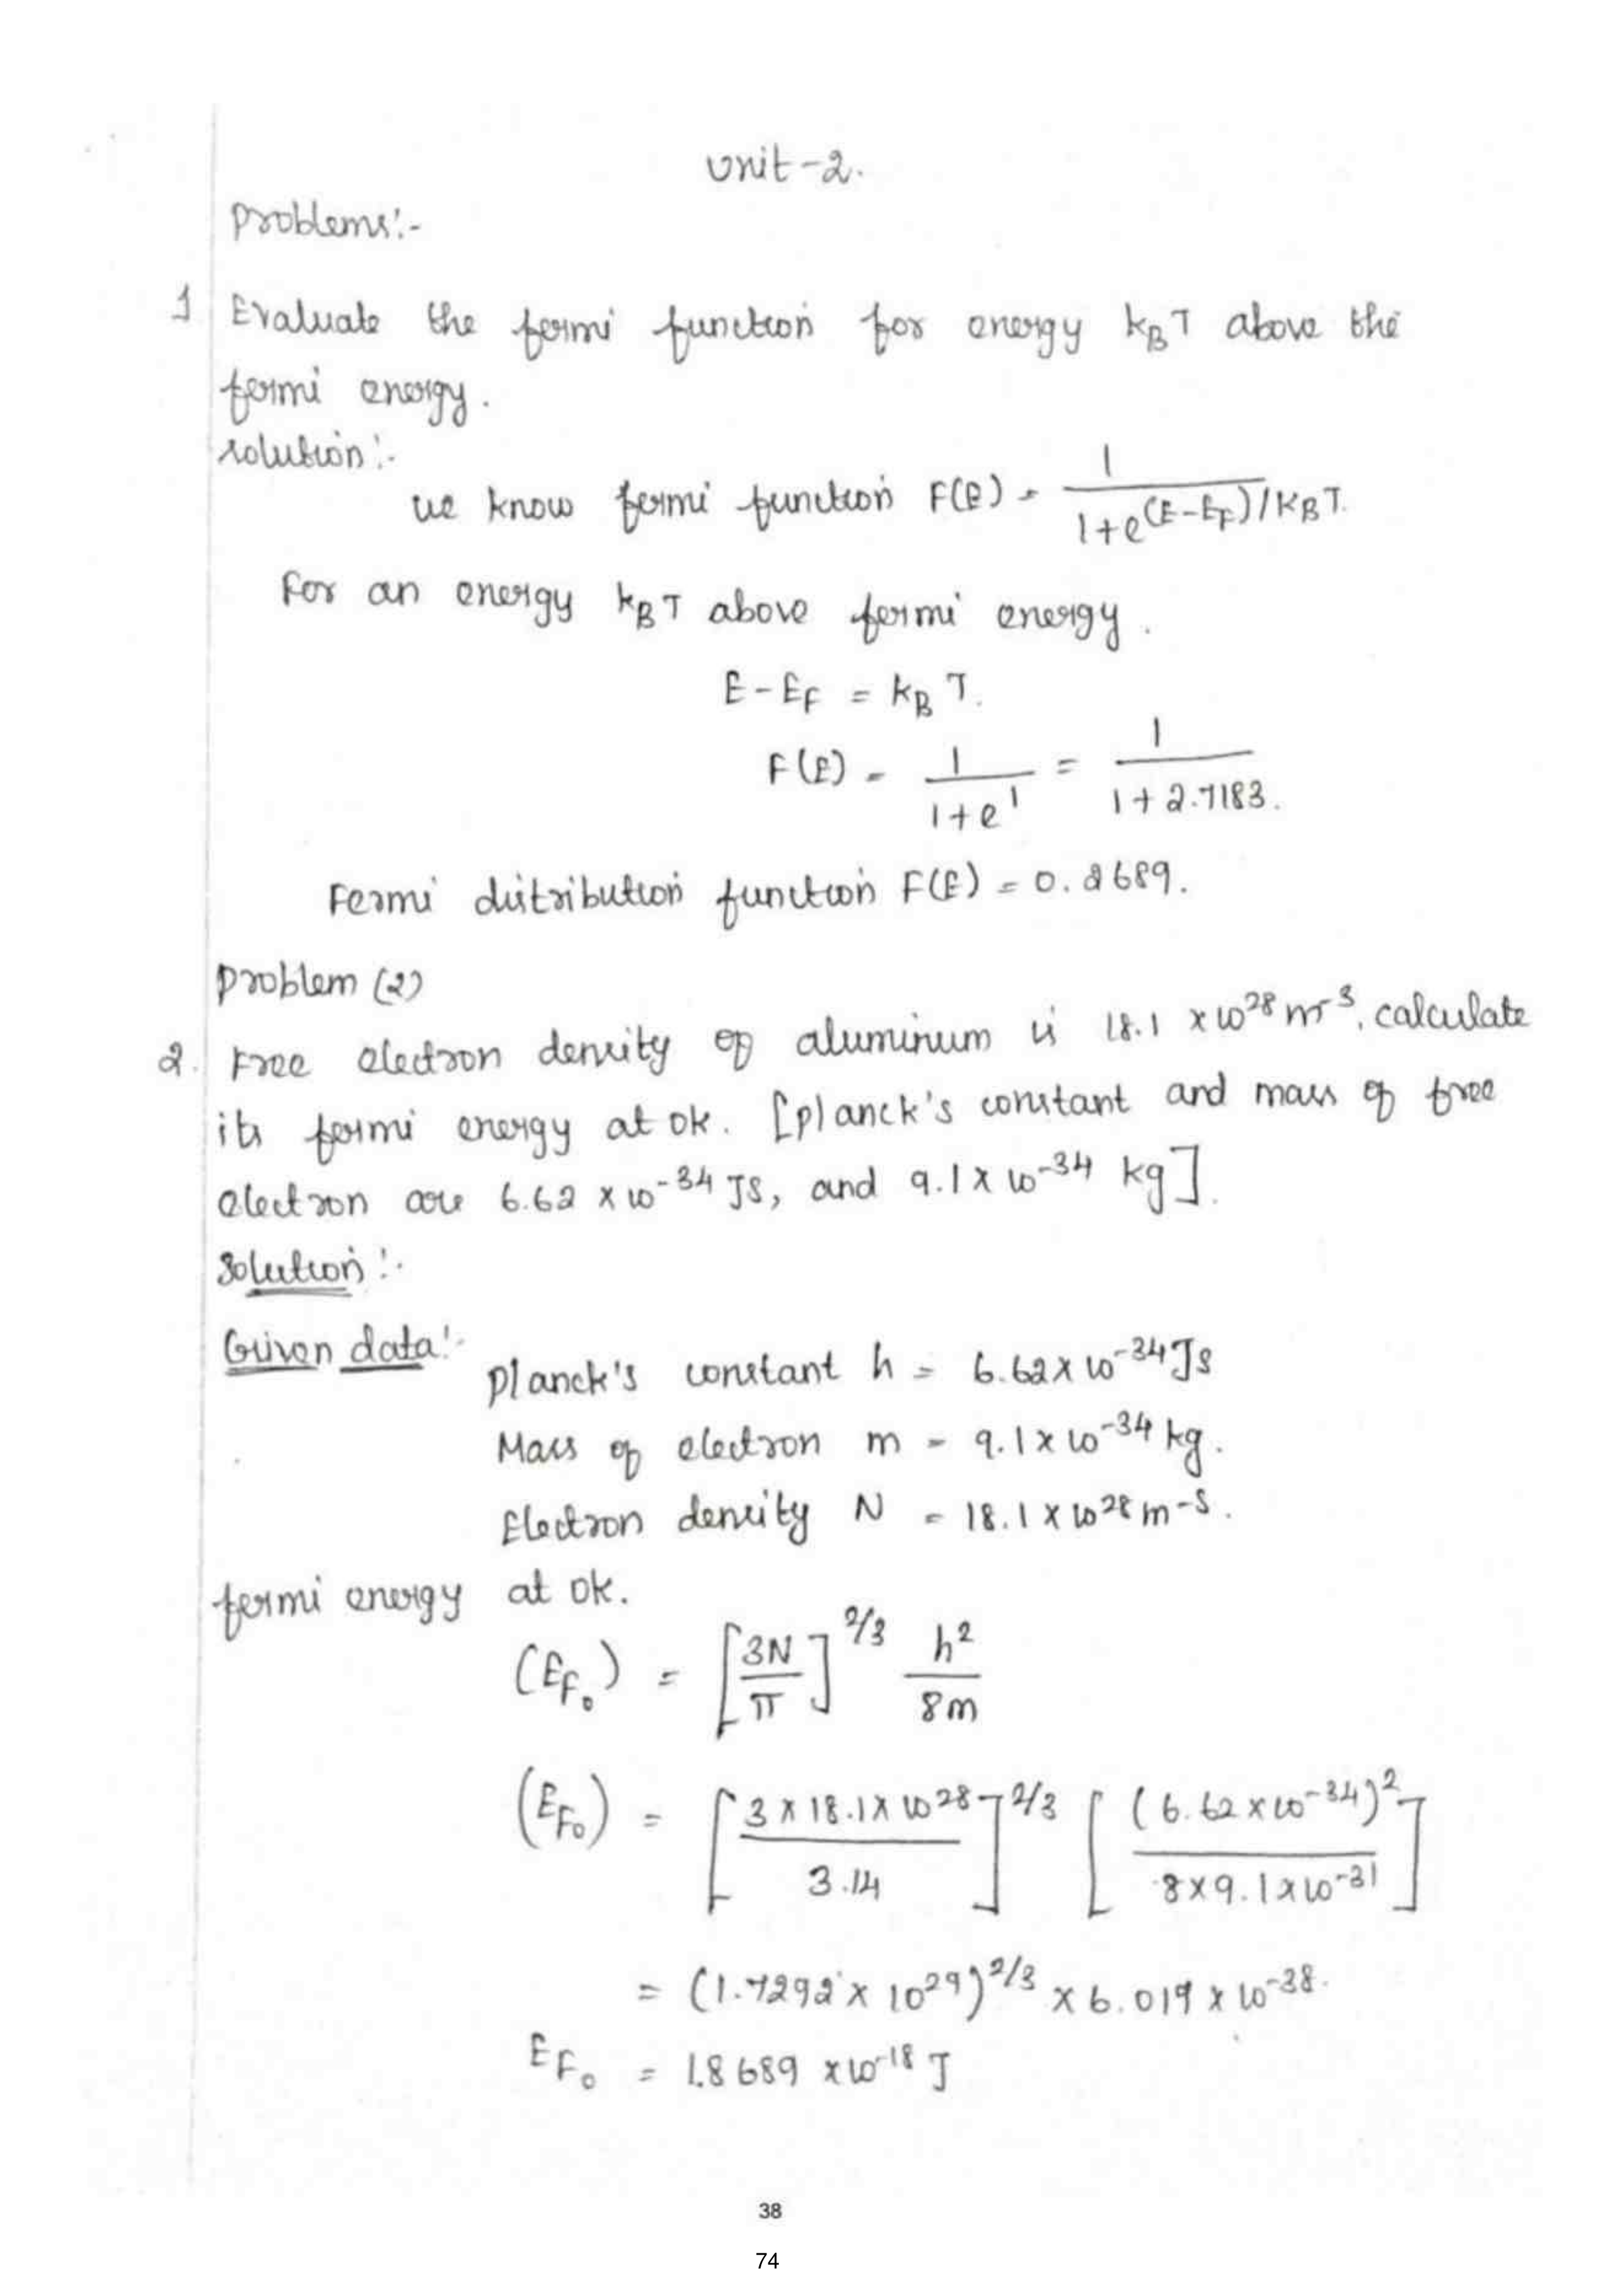 Unit-2.
Problems:-
1 Evaluate the fermi function for energy KBT above the
fermi energy.
Solution:-
We know fermi function F(E) = 1 / 1+e^(E-EF)/KBT.
For an energy KBT above fermi energy.
E-EF = KBT.
F(E) = 1 / 1+e^1 = 1 / 1+2.7183.
Fermi distribution function F(E) = 0.2689.
Problem (2)
2. Free electron density of aluminum is 18.1 x 10^28 m^-3. calculate
its fermi energy at 0K. [Planck's constant and mass of free
electron are 6.62 x 10^-34 JS, and 9.1 x 10^-34 kg].
Solution:-
Given data:-
Planck's constant h = 6.62 x 10^-34 JS
Mass of electron m = 9.1 x 10^-34 kg.
Electron density N = 18.1 x 10^28 m^-3.
fermi energy at 0K.
(EF0) = [3N/π]^2/3 h^2/8m
(EF0) = [3 x 18.1 x 10^28 / 3.14]^2/3 [(6.62 x 10^-34)^2 / 8 x 9.1 x 10^-31]
= (1.7292 x 10^29)^2/3 x 6.019 x 10^-38.
EF0 = 1.8689 x 10^-18 J
38
74